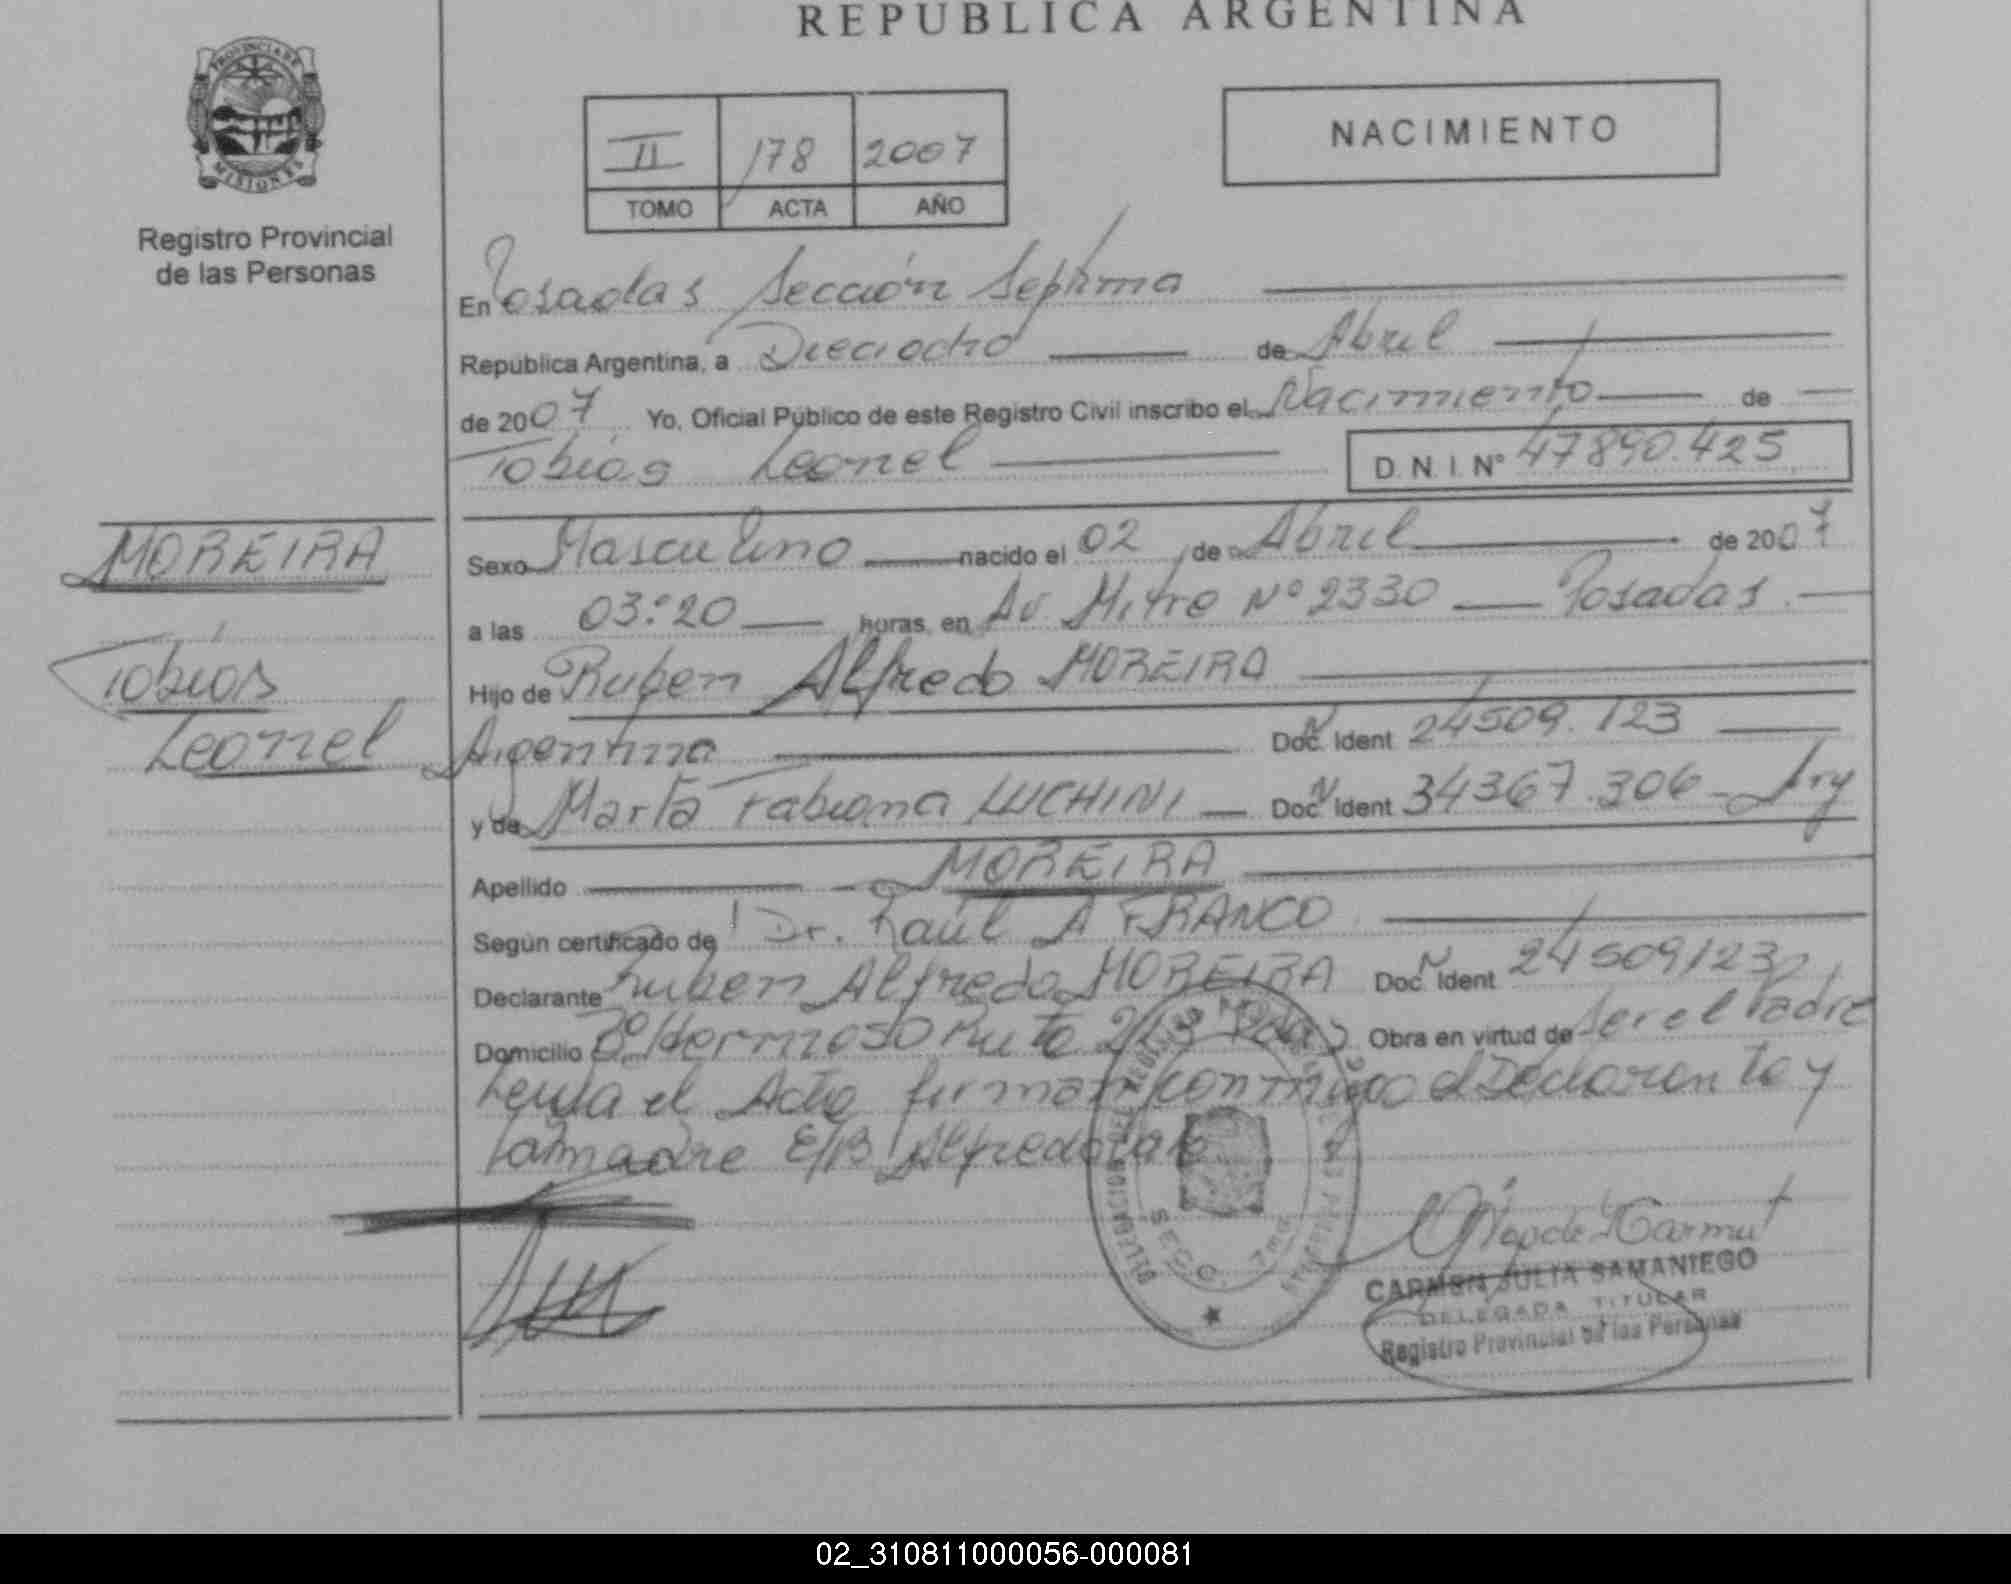 REPUBLICA ARGENTINA
PROVINCIA DE
MISIONES
Registro Provincial
de las Personas
II 178 2007
TOMO ACTA AÑO
NACIMIENTO
En Posadas Sección Septima
República Argentina, a Dieciocho de Abril
de 2007 Yo, Oficial Público de este Registro Civil inscribo el Nacimiento de
Tobias Leonel D.N.I. Nº 47890.425
MOREIRA
Tobias
Leonel
Sexo Masculino nacido el 02 de Abril de 2007
a las 03:20 horas, en Av Mitre Nº 2330 Posadas
Hijo de Ruben Alfredo MOREIRA
Argentina Doc. Ident 24509.123
y de Marta Fabiana LUCHINI Doc. Ident 34367.306 - Arg
Apellido MOREIRA
Según certificado de Dr. Raúl A FRANCO
Declarante Ruben Alfredo MOREIRA Doc. Ident 24509123
Domicilio Bº Hermoso Ruta 213 Pdas Obra en virtud de ser el Padre
el Acta firman conmigo el Declarante y
la madre E/B Alfredo
SECC. 7ma
CARMEN JULIA SAMANIEGO
DELEGADA TITULAR
Registro Provincial de las Personas
02_310811000056-000081